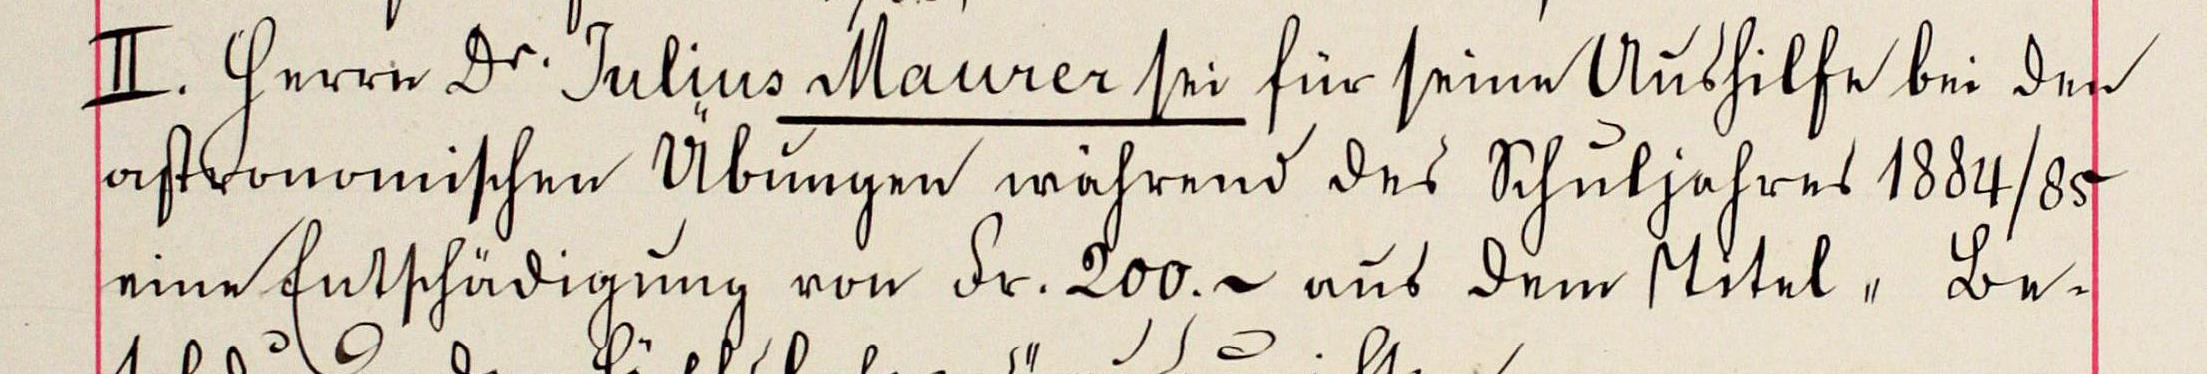 II. Herrn Dr. Julius Maurer sei für seine Aushilfe bei den
astronomischen Übungen während des Schuljahres 1884/85
eine Entschädigung von Fr. 200.- aus dem Titel „ Be-